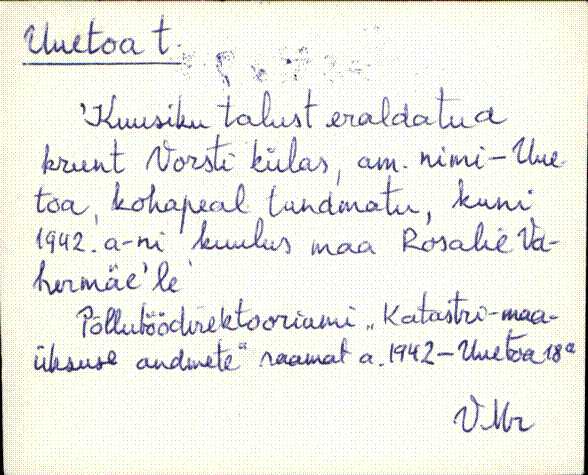 Uuetoa t.
'Kuusiku talust eraldatud
krunt Vorsti külas, am. nimi - Uue-
toa, kohapeal tundmatu, kuni
1942. a-ni kuulus maa Rosalie Va-
hermäe'le'
Põllutöödirektooriumi „Katastri-maa-
üksuse andmete" raamat a. 1942 – Uuetoa 18a
VMr